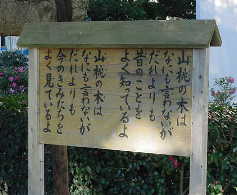 山桃の木は
なにも言わないが
だれよりも
昔のことを
よく知っているよ
山桃の木は
なにも言わないが
だれよりも
今のきみたちを
よく見ているよ